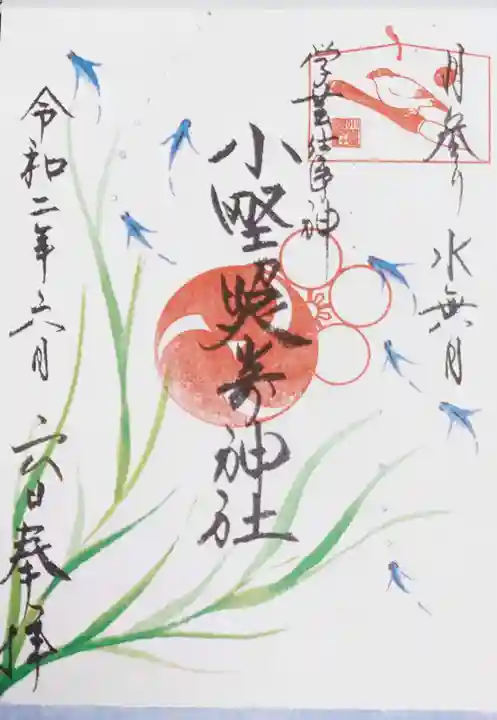 月参り 水無月
学芸仕事神
小野照崎神社
令和二年六月 六日奉拝